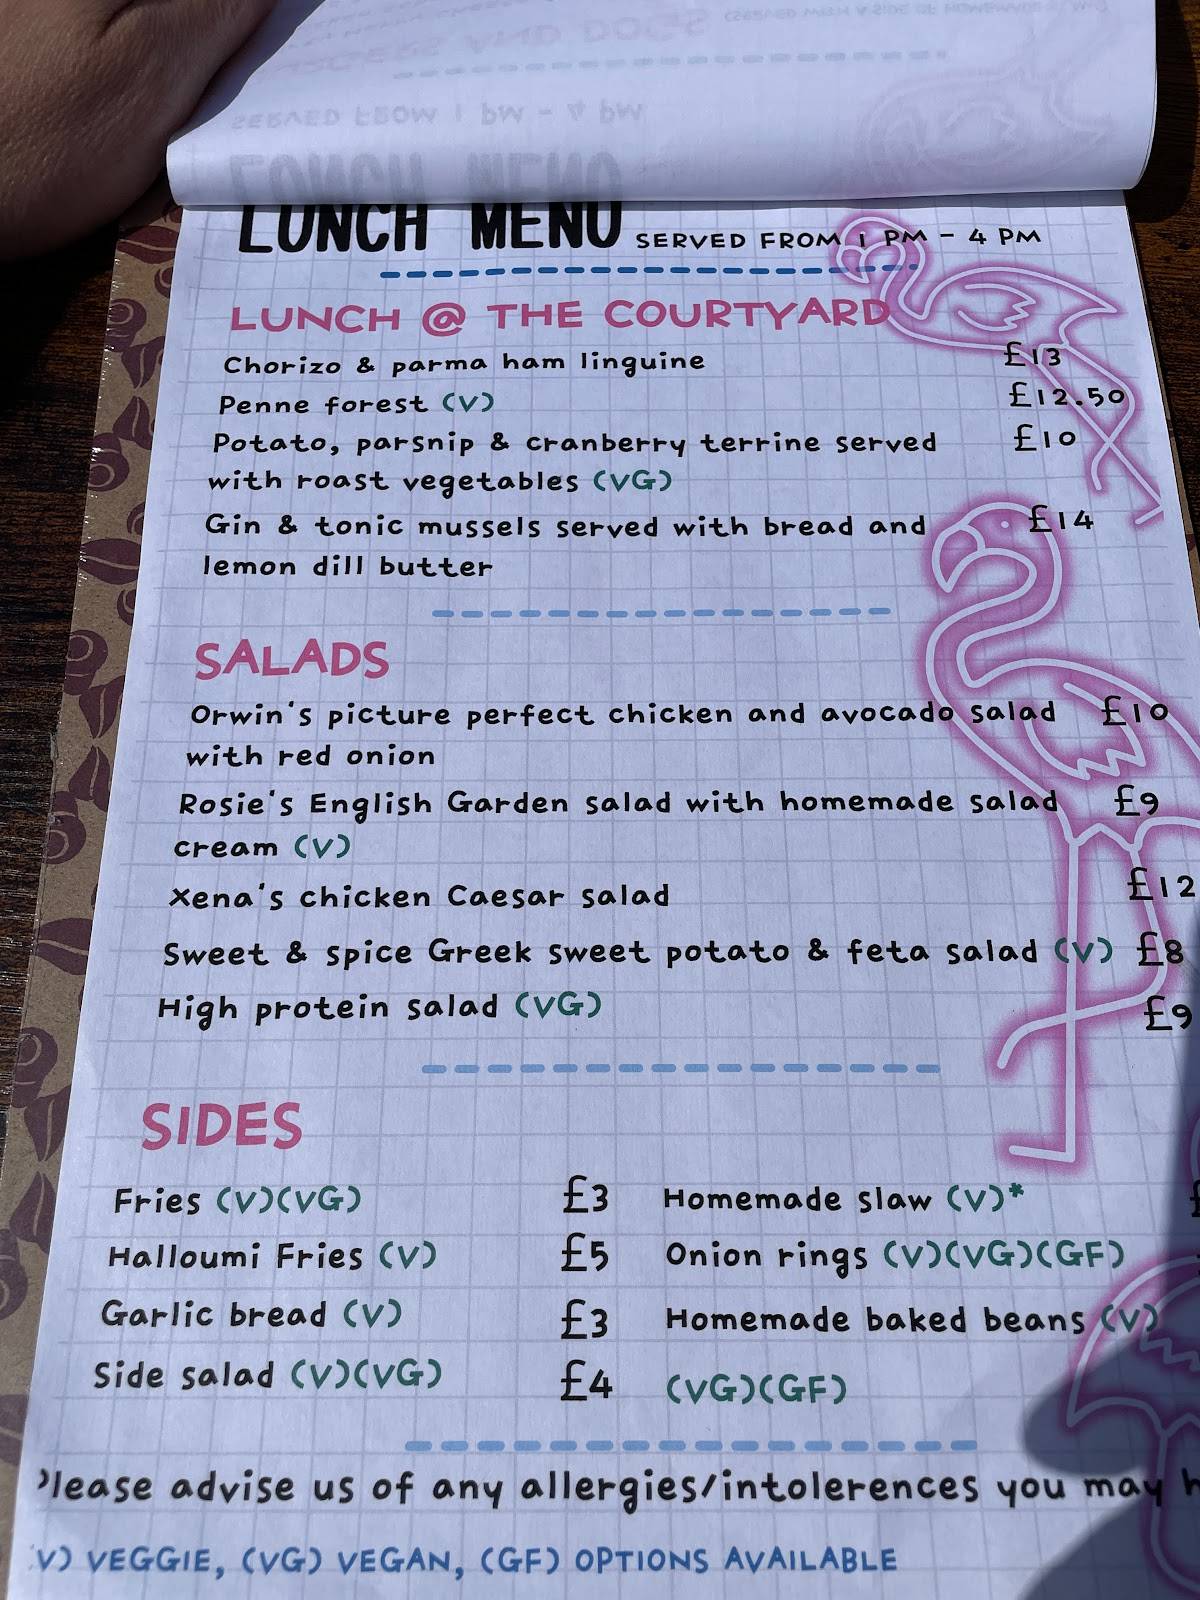 LUNCH MENU SERVED FROM 1 PM - 4 PM
LUNCH @ THE COURTYARD
Chorizo & parma ham linguine £13
Penne forest (V) £12.50
Potato, parsnip & cranberry terrine served £10
with roast vegetables (VG)
Gin & tonic mussels served with bread and £14
lemon dill butter
SALADS
Orwin's picture perfect chicken and avocado salad £10
with red onion
Rosie's English Garden salad with homemade salad £9
cream (V)
Xena's chicken Caesar salad £12
Sweet & spice Greek sweet potato & feta salad (V) £8
High protein salad (VG) £9
SIDES
Fries (V)(VG) £3 Homemade slaw (V)*
Halloumi Fries (V) £5 Onion rings (V)(VG)(GF)
Garlic bread (V) £3 Homemade baked beans (V)
Side salad (V)(VG) £4 (VG)(GF)
lease advise us of any allergies/intolerences you may h
V) VEGGIE, (VG) VEGAN, (GF) OPTIONS AVAILABLE